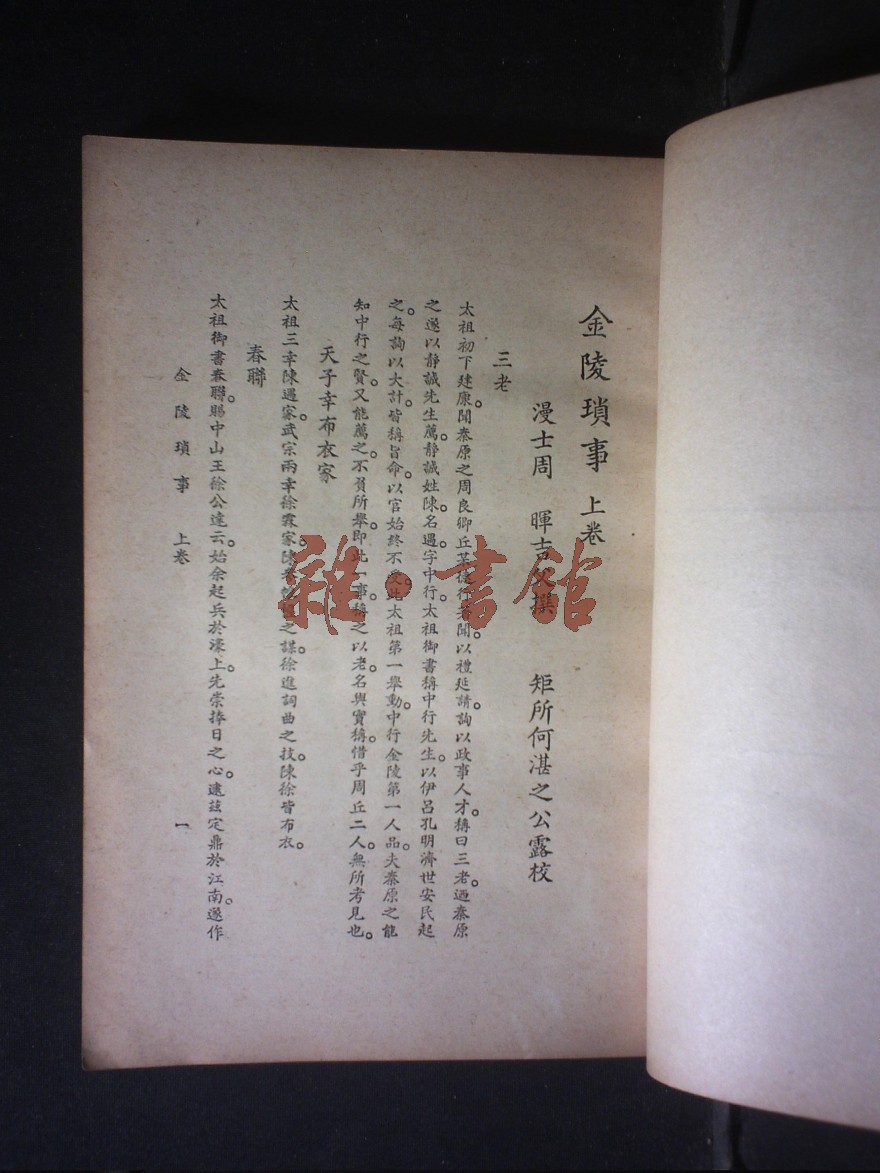 金陵瑣事 上卷
漫士周 暉吉父撰 矩所何湛之公露校
三老
太祖初下建康。聞秦原之周良卿丘某德行著聞。以禮延請。詢以政事人才。稱曰三老。迺秦原
之遂以靜誠先生薦。靜誠姓陳。名遇字中行。太祖御書稱中行先生。以伊呂孔明濟世安民起
之。每詢以大計。皆稱旨。命以官始終不受。此太祖第一舉動。中行金陵第一人品。夫秦原之能
知中行之賢。又能薦之。不負所舉。即此一事。稱之以老。名與實稱。惜乎周丘二人。無所考見也。
天子幸布衣家
太祖三幸陳遇家。武宗兩幸徐霖家。陳之謀。徐進詞曲之技。陳徐皆布衣。
春聯
太祖御書春聯。賜中山王徐公達云。始余起兵於濠上。先崇捧日之心。逮茲定鼎於江南。遂作
金陵瑣事 上卷 一
雜·書館